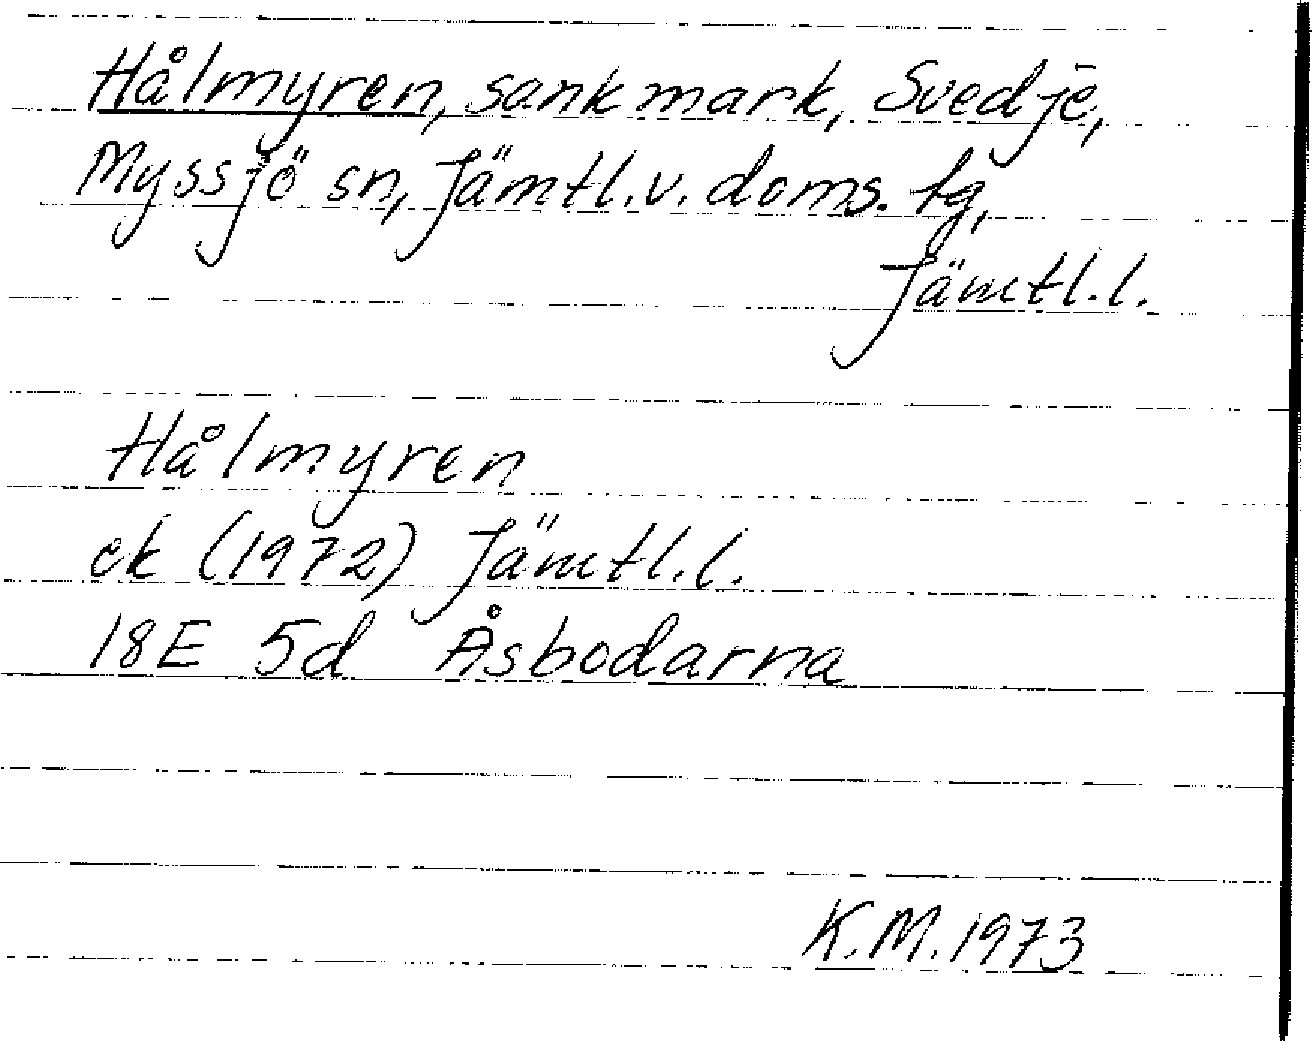 Hålmyren, sankmark, Svedje,
Myssjö sn, Jämtl.v. doms. tg,
Jämtl.l.
Hålmyren
ek (1972) Jämtl.l.
18E 5d Åsbodarna
K.M.1973